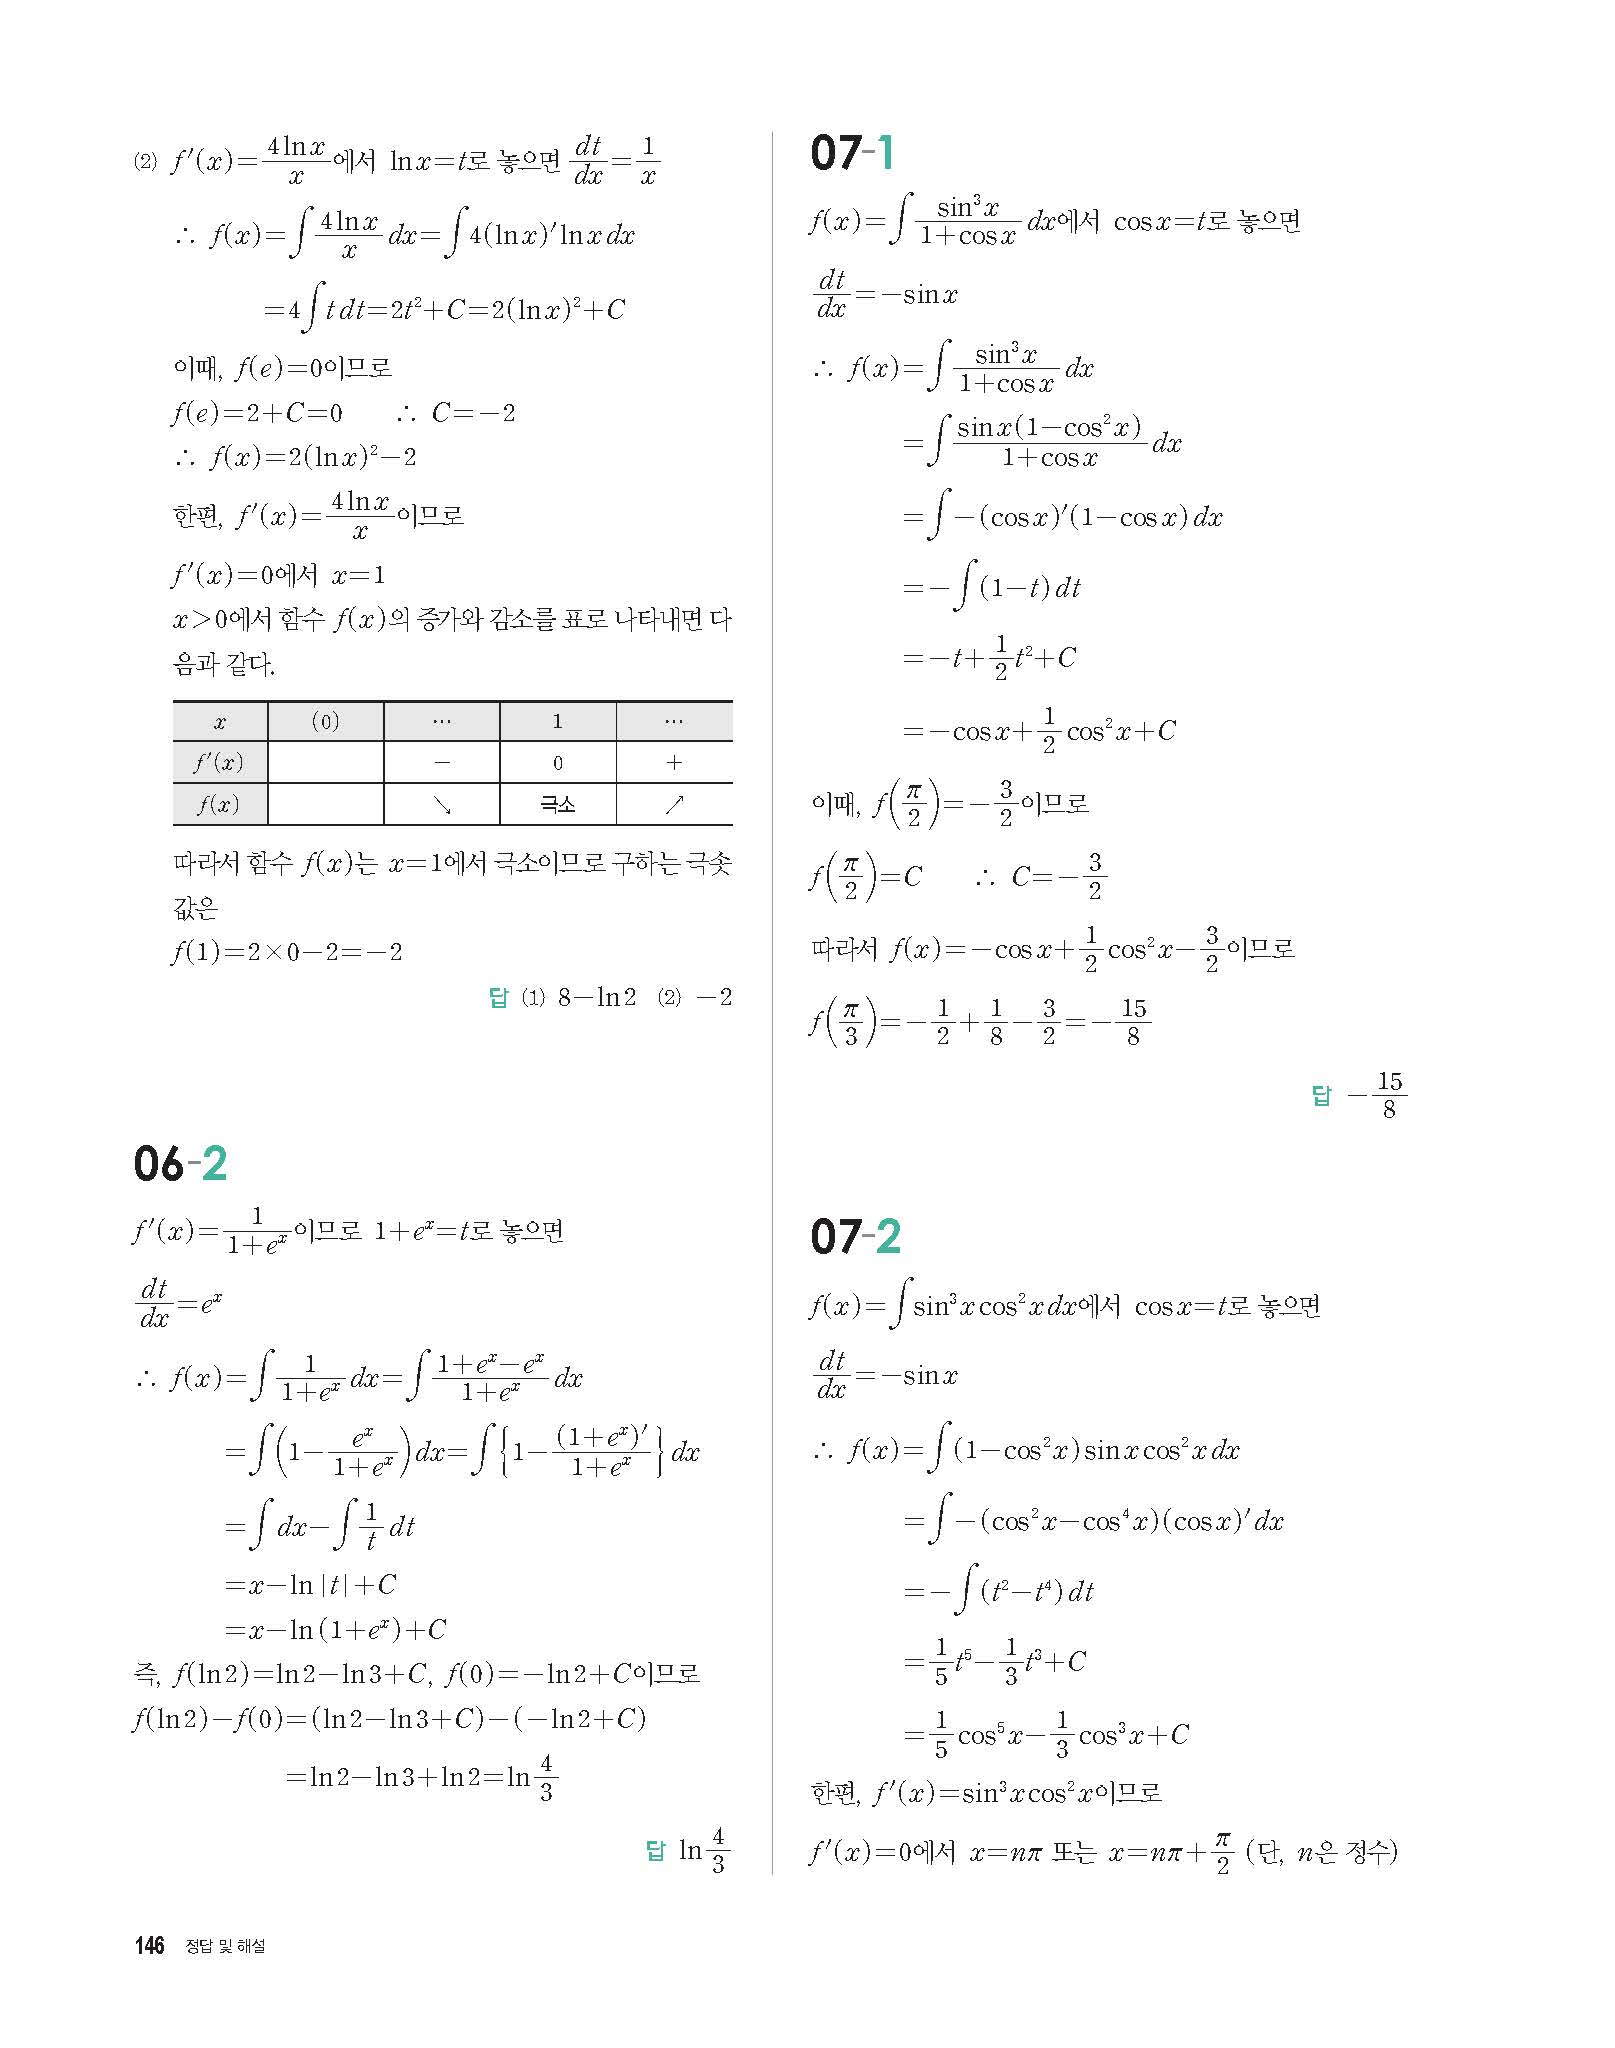 (2) f′(x)=4lnx/x에서 lnx=t로 놓으면 dt/dx=1/x
∴ f(x)=∫4lnx/x dx=∫4(lnx)′lnxdx
=4∫tdt=2t²+C=2(lnx)²+C
이때, f(e)=0이므로
f(e)=2+C=0 ∴ C=-2
∴ f(x)=2(lnx)²-2
한편, f′(x)=4lnx/x이므로
f′(x)=0에서 x=1
x>0에서 함수 f(x)의 증가와 감소를 표로 나타내면 다
음과 같다.
x (0) ⋯ 1 ⋯
f′(x) - 0 +
f(x) ↘ 극소 ↗
따라서 함수 f(x)는 x=1에서 극소이므로 구하는 극솟
값은
f(1)=2×0-2=-2
답 (1) 8-ln2 (2) -2
06-2
f′(x)=1/(1+eˣ)이므로 1+eˣ=t로 놓으면
dt/dx=eˣ
∴ f(x)=∫1/(1+eˣ) dx=∫(1+eˣ-eˣ)/(1+eˣ) dx
=∫(1-eˣ/(1+eˣ))dx=∫{1-(1+eˣ)′/(1+eˣ)}dx
=∫dx-∫1/t dt
=x-ln|t|+C
=x-ln(1+eˣ)+C
즉, f(ln2)=ln2-ln3+C, f(0)=-ln2+C이므로
f(ln2)-f(0)=(ln2-ln3+C)-(-ln2+C)
=ln2-ln3+ln2=ln4/3
답 ln4/3
07-1
f(x)=∫sin³x/(1+cosx) dx에서 cosx=t로 놓으면
dt/dx=-sinx
∴ f(x)=∫sin³x/(1+cosx) dx
=∫sinx(1-cos²x)/(1+cosx) dx
=∫-(cosx)′(1-cosx)dx
=-∫(1-t)dt
=-t+1/2 t²+C
=-cosx+1/2 cos²x+C
이때, f(π/2)=-3/2이므로
f(π/2)=C ∴ C=-3/2
따라서 f(x)=-cosx+1/2 cos²x-3/2이므로
f(π/3)=-1/2+1/8-3/2=-15/8
답 -15/8
07-2
f(x)=∫sin³xcos²xdx에서 cosx=t로 놓으면
dt/dx=-sinx
∴ f(x)=∫(1-cos²x)sinxcos²xdx
=∫-(cos²x-cos⁴x)(cosx)′dx
=-∫(t²-t⁴)dt
=1/5 t⁵-1/3 t³+C
=1/5 cos⁵x-1/3 cos³x+C
한편, f′(x)=sin³xcos²x이므로
f′(x)=0에서 x=nπ 또는 x=nπ+π/2 (단, n은 정수)
146 정답 및 해설